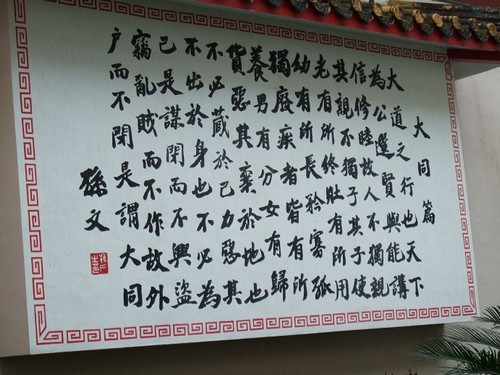 大同篇
大道之行也天下
為公選賢與能講
信修睦故人不獨親
其親不獨子其子使
老有所終壯有所用
幼有所長矜寡孤
獨廢疾者皆有所
養男有分女有歸
貨惡其棄於地也
不必藏於己力惡其
不出於身也不必為
己是謀閉而不興盜
竊亂賊而不作故外
戶而不閉是謂大同
孫文